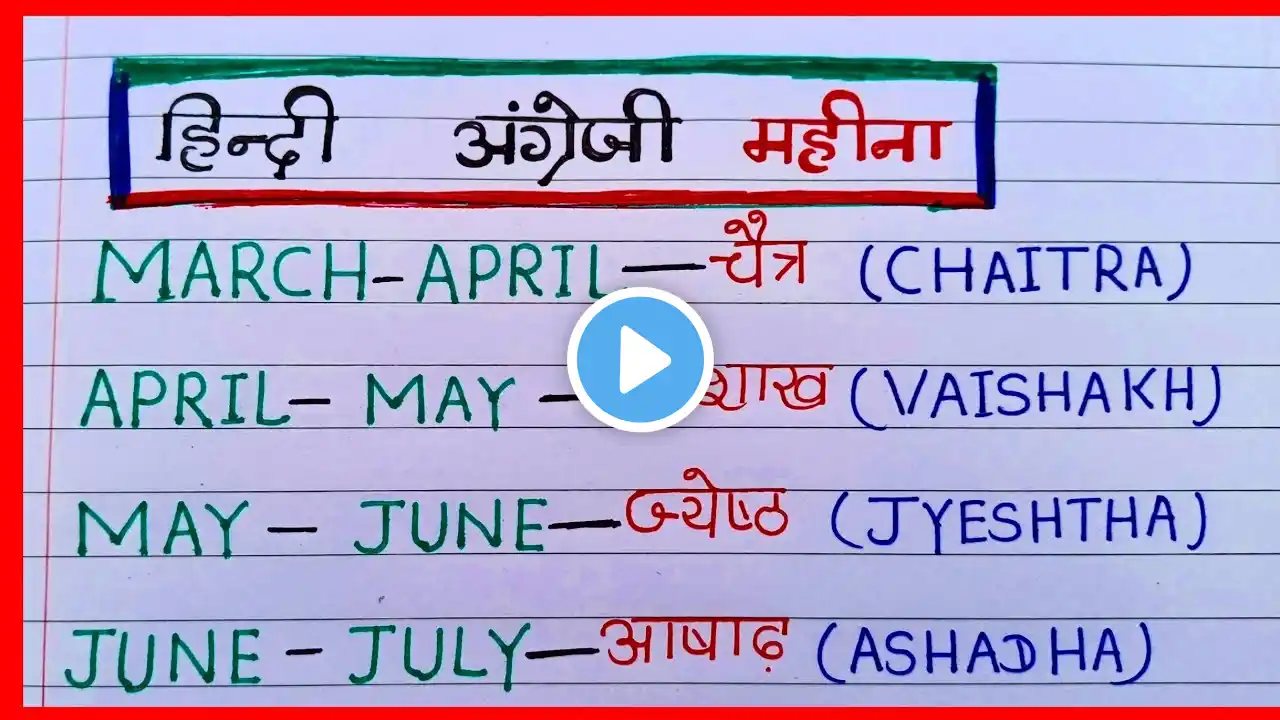 हिन्दी अंग्रेजी महीना
MARCH-APRIL—चैत्र (CHAITRA)
APRIL- MAY - (VAISHAKH)
MAY - JUNE—ज्येष्ठ (JYESHTHA)
JUNE - JULY—आषाढ़ (ASHADHA)